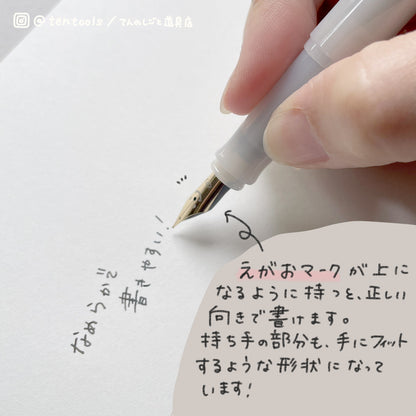 @tentools/てんのしごと道具店
なめらかで
書きやすい!
えがおマークが上に
なるように持つと、正しい
向きで書けます。
持ち手の部分も、手にフィット
するような形状になって
います!